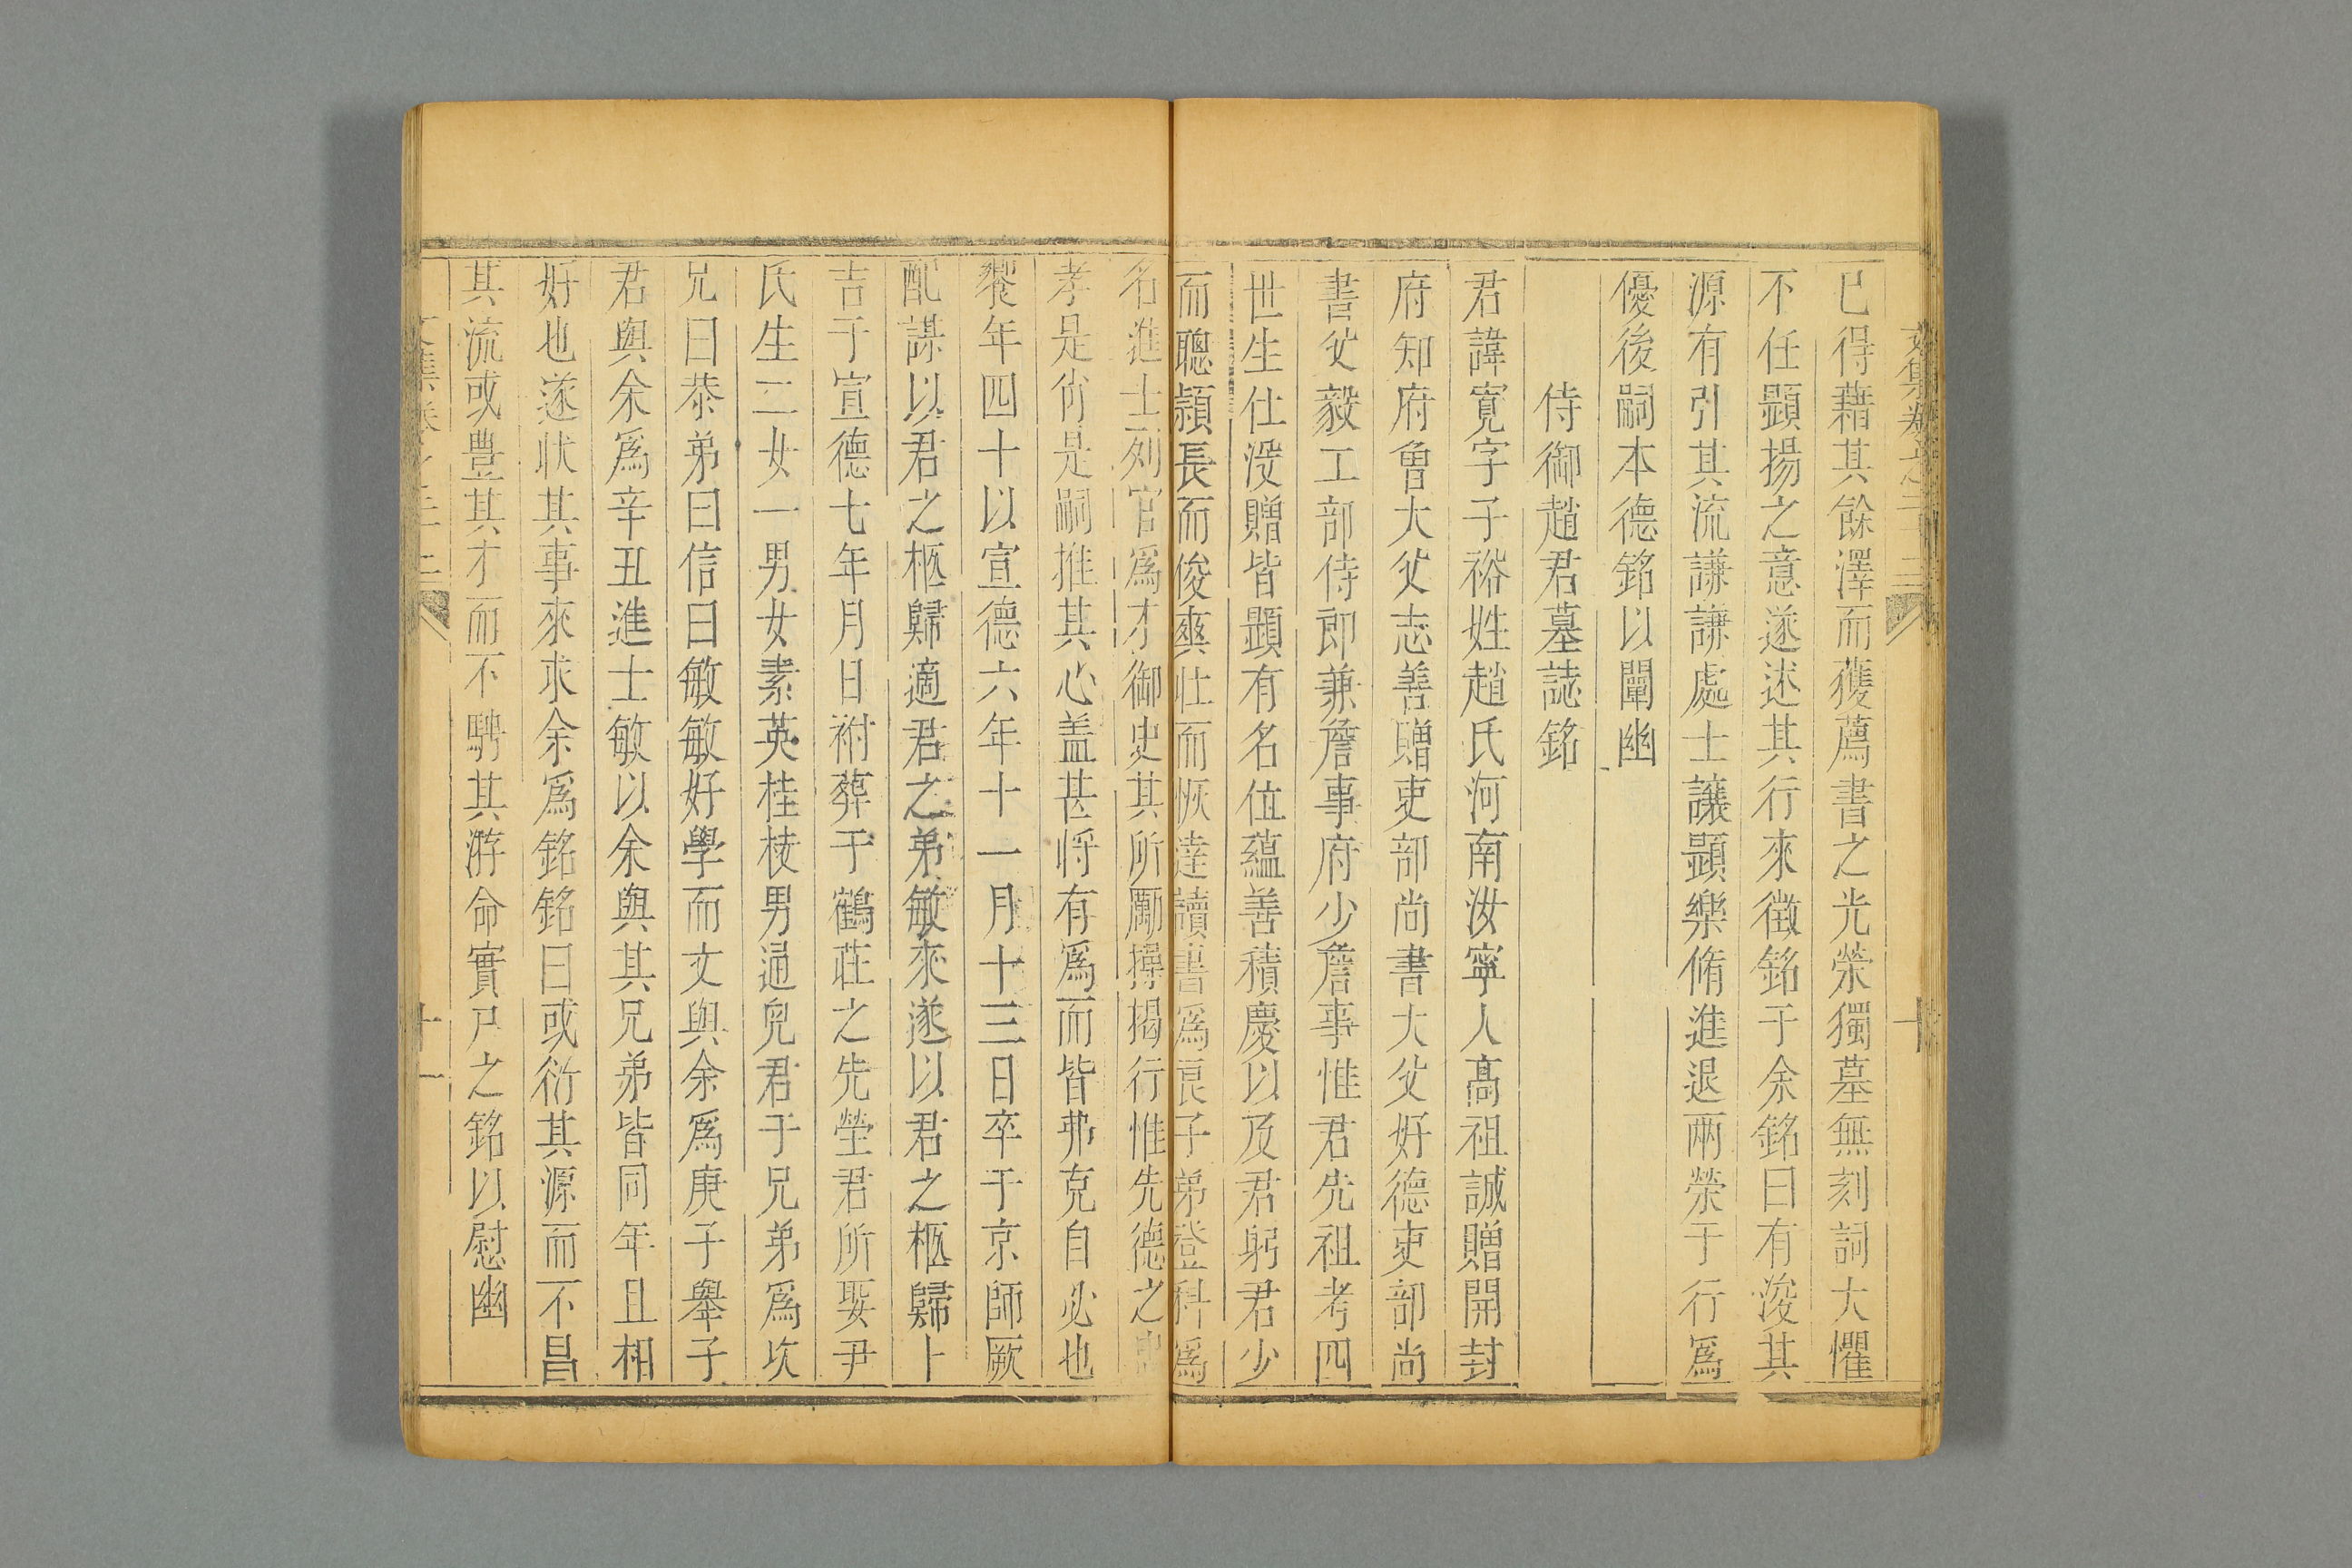 已得藉其餘澤而獲薦書之光榮獨墓無刻詞大懼
不任顯揚之意遂述其行來徵銘于余銘曰有浚其
源有引其流謙謙處士讓顯樂脩進退兩榮于行爲
優後嗣本德銘以闡幽
侍御趙君墓誌銘
君諱寛字子裕姓趙氏河南汝寧人高祖誠贈開封
府知府曾大父志善贈吏部尚書大父好德吏部尚
書父毅工部侍郎兼詹事府少詹事惟君先祖考四
世生仕沒贈皆顯有名位蘊善積慶以及君躬君少
而聰頴長而俊爽壯而恢逹讀書爲良子弟登科爲
名進士列官爲才御史其所勵操揭行惟先德之
孝是尚是嗣推其心盖甚將有爲而皆弗克自必也
年四十以宣德六年十一月十三日卒于京師厥
配謀以君之柩歸適君之弟敏來遂以君之柩歸卜
吉于宣德七年月日祔葬于鶴莊之先塋君所娶尹
氏生二女一男女素英桂枝男通兒君于兄弟爲次
兄曰恭弟曰信曰敏敏好學而文與余爲庚子舉子
君與余爲辛丑進士敏以余與其兄弟皆同年且相
好也遂狀其事來求余爲銘銘曰或衍其源而不昌
其流或豊其才而不騁其游命實尸之銘以慰幽
文集卷之
十
十一